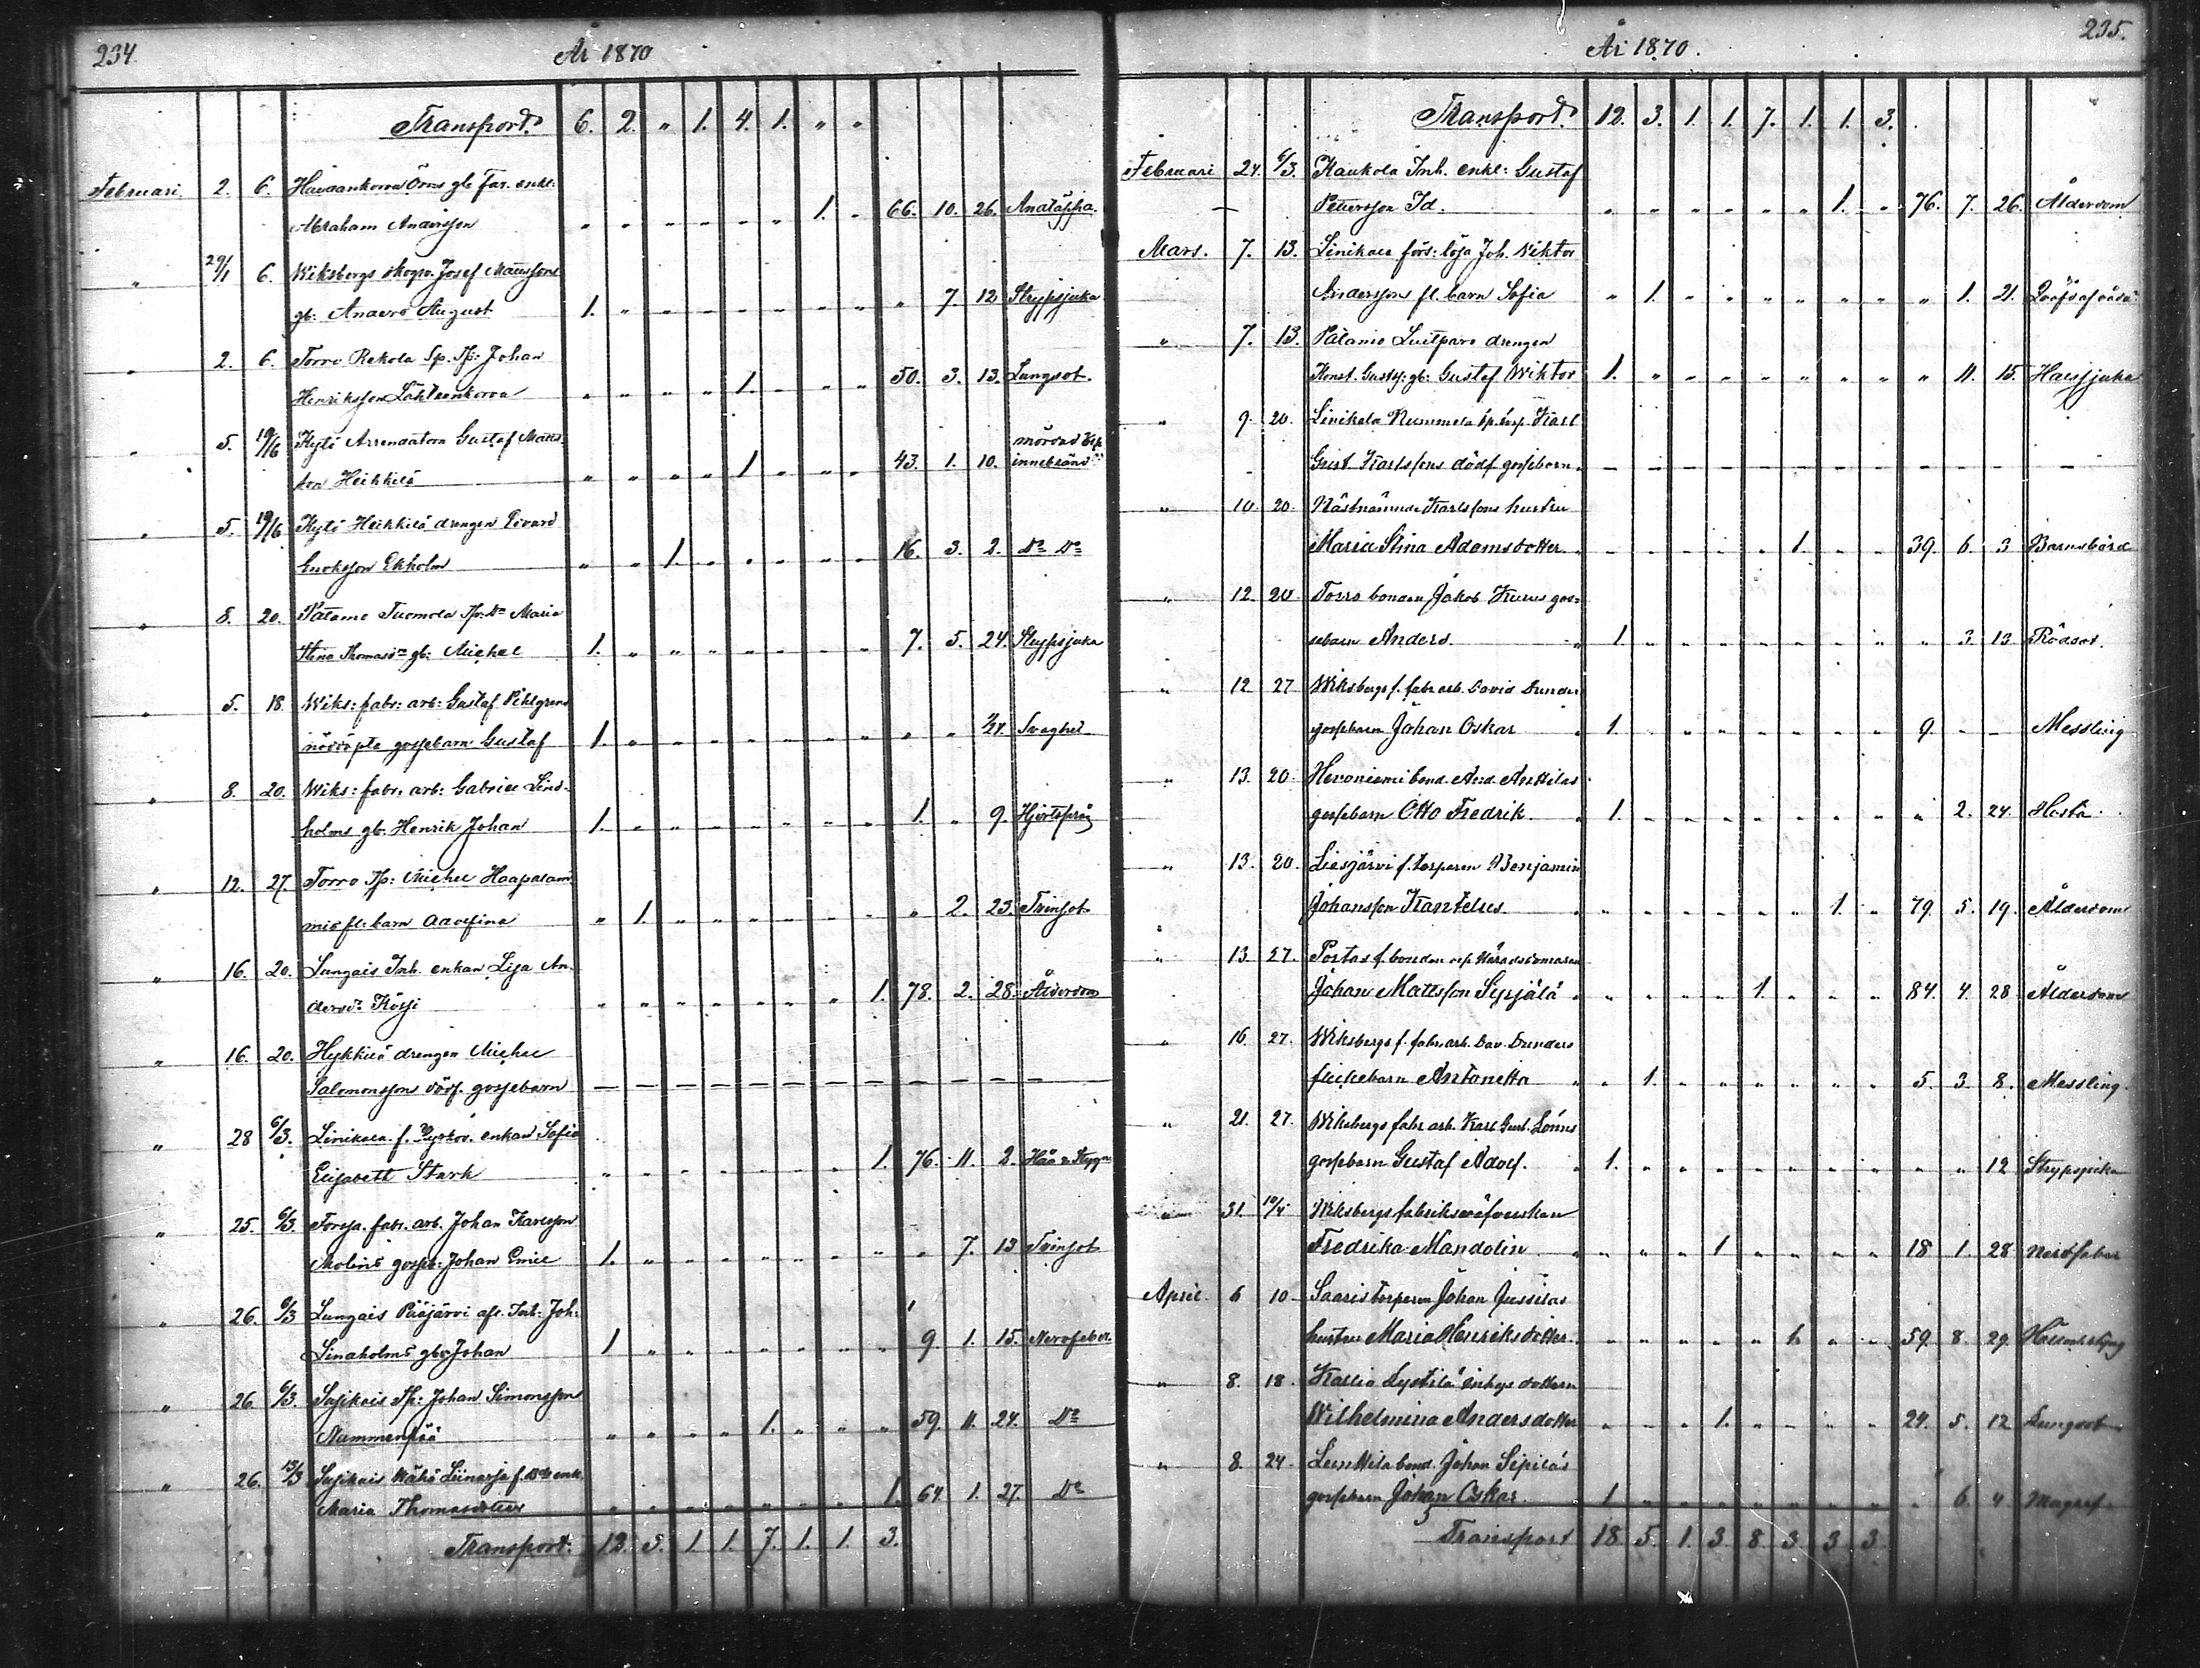 234.
År 1870
Transport. 6. 2. " 1. 4. 1. " "
Februari. 2. 6. Haudankorva Örns gb far. enkl:
Abraham Andersson " " " " " " 1. " 66. 10. 26. Andtäppa.
" 29/1 6. Wiksbergs skogv. Josef Mattssons
gb: Anders August 1. " " " " " " " " 7. 12 Strypsjuka
" 2. 6. Torro Rekola Sp. Tp: Johan
Henriksson Lähteenkorva " " " " 1. " " " 50. 3. 13. Lungsot.
" 5. 19/6 Kytö Arrendatorn Gustaf Matts- mördad
son Heikkilä " " " " 1 " " " 43. 1. 10. innebränd
" 5. 19/6 Kytö Heikkilä drengen Edvard
Eriksson Ekholm " " 1. " " " " " 16. 3. 2. Do Do
" 8. 20. Patamo Tuomola Maria
Stina Thomasdr gb: Michel 1. " " " " " " " 7. 5. 24. Strypsjuka
" 5. 18. Wiks: fabr: arb: Gustaf Pihlgrens
nöddöpte gossebarn Gustaf 1. " " " " " " " " " Svaghet
" 8. 20. Wiks: fabr. arb: Gabriel Lind-
holms gb. Henrik Johan 1. " " " " " " " 1. " 9. Hjertsprång
" 12. 27. Torro Tp: Michel Haapalam-
mis fl: barn Adolfina " 1. " " " " " " " 2. 23. Tvinsot
" 16. 20. Lungais Inh. enkan Lisa An-
dersdr Kössi " " " " " " " 1. 78. 2. 28. Ålderdom
" 16. 20. Hykkilä drengen Michel
Salomonsson dödf. gossebarn — — — — — — — — — — —
" 28 6/3. Linikkala f. enkan Sofia
Elisabeth Stark " " " " " " " 1. 76. 11. 2. Håll o Styng
" 25. 6/3 Forssa fabr. arb. Johan Karlsson
Molins gosseb: Johan Emil 1. " " " " " " " " 7. 13 Tvinsot
" 26. 6/3 Lungais Pääjärvi afl. Inh: Joh:
Lindholms gb: Johan 1 " " " " " " " 9 1. 15. Nervfeber
" 26. 6/3. Sujkais Tp: Johan Simonsson
Nummenpää " " " " 1. " " " 59. 11. 24. Do
" 26. 13/3 Sujkais Wähä f. enk.
Maria Thomasdotter " " " " " " " 1. 64 1. 27 Do
Transport. 12. 3. 1. 1. 7. 1. 1. 3.
235.
År 1870.
Transport. 12. 3. 1. 1. 7. 1. 1. 3.
Februari 24. 6/3. Kaukola Inh. enkl: Gustaf
Pettersson Id. " " " " " " 1. " 76. 7. 26. Ålderdom
Mars. 7. 13. Linikala förs: löja Joh. Wiktor
Anderssons fl. barn Sofia " 1. " " " " " " " 1. 21.
" 7. 13. Patamo drengen
Konst. Gustfs: gb: Gustaf Wiktor 1. " " " " " " " " 11. 15. Halssjuka
" 9. 20. Linikala Nummela Karl
Gust. Karlssons dödf gossebarn. — — — — — — — — — — — —
" 10. 20. Nästnämnde Karlssons hustru
Maria Stina Adamsdotter. " " " " " 1. " " 39. 6. 3 Barnsbörd
" 12. 20. Torro bonden Jakob Kurus gos-
sebarn Anders. 1. " " " " " " " " 3. 13. Rödsot.
" 12 27 Wiksbergs f. fabr arb. David Dunder
gossebarn Johan Oskar 1. " " " " " " " 9. - - Messling
" 13. 20. Heroniemi bond. And. Anttilas
gossebarn Otto Fredrik. 1. " " " " " " " " 2. 24. Hosta.
" 13. 20. Liesjärvi f. torparen Benjamin
Johansson Kantelus. " " " " " " 1. " 79. 5. 19. Ålderdom
" 13. 27. Portas f. bonden Häradsdomaren
Johan Mattsson Syrjälä " " " " 1. " " " 84. 4. 28 Ålderdom
" 16. 27. Wiksbergs f. fabr. arb. Dav. Dunders
flickebarn Antonetta " 1. " " " " " " 5. 3. 8. Messling.
" 21. 27. Wiksbergs fabr. arb. Karl Gust. Lönns
gossebarn Gustaf Adolf. 1. " " " " " " " " " 12 Strypsjuka
" 31. 10/4 Wiksbergs fabriksväfverskan
Fredrika Mandolin " " " 1 " " " " 18 1. 28 Nervfeber
April. 6 10 Saaris torparen Johan Jussilas
hustru Maria Henriksdotter. " " " " " 1. " " 59. 8. 29. Håll och styng
" 8. 18. Kallio Lystilä inhys dottern
Wilhelmina Andersdotter " " " 1. " " " " 24. 5. 12 Lungsot
" 8. 24. Lunttila bond. Johan Sipiläs
gossebarn Johan Oskar. 1 " " " " " " " " 6. 4
Transport 18. 5. 1. 3. 8. 3. 3 3.